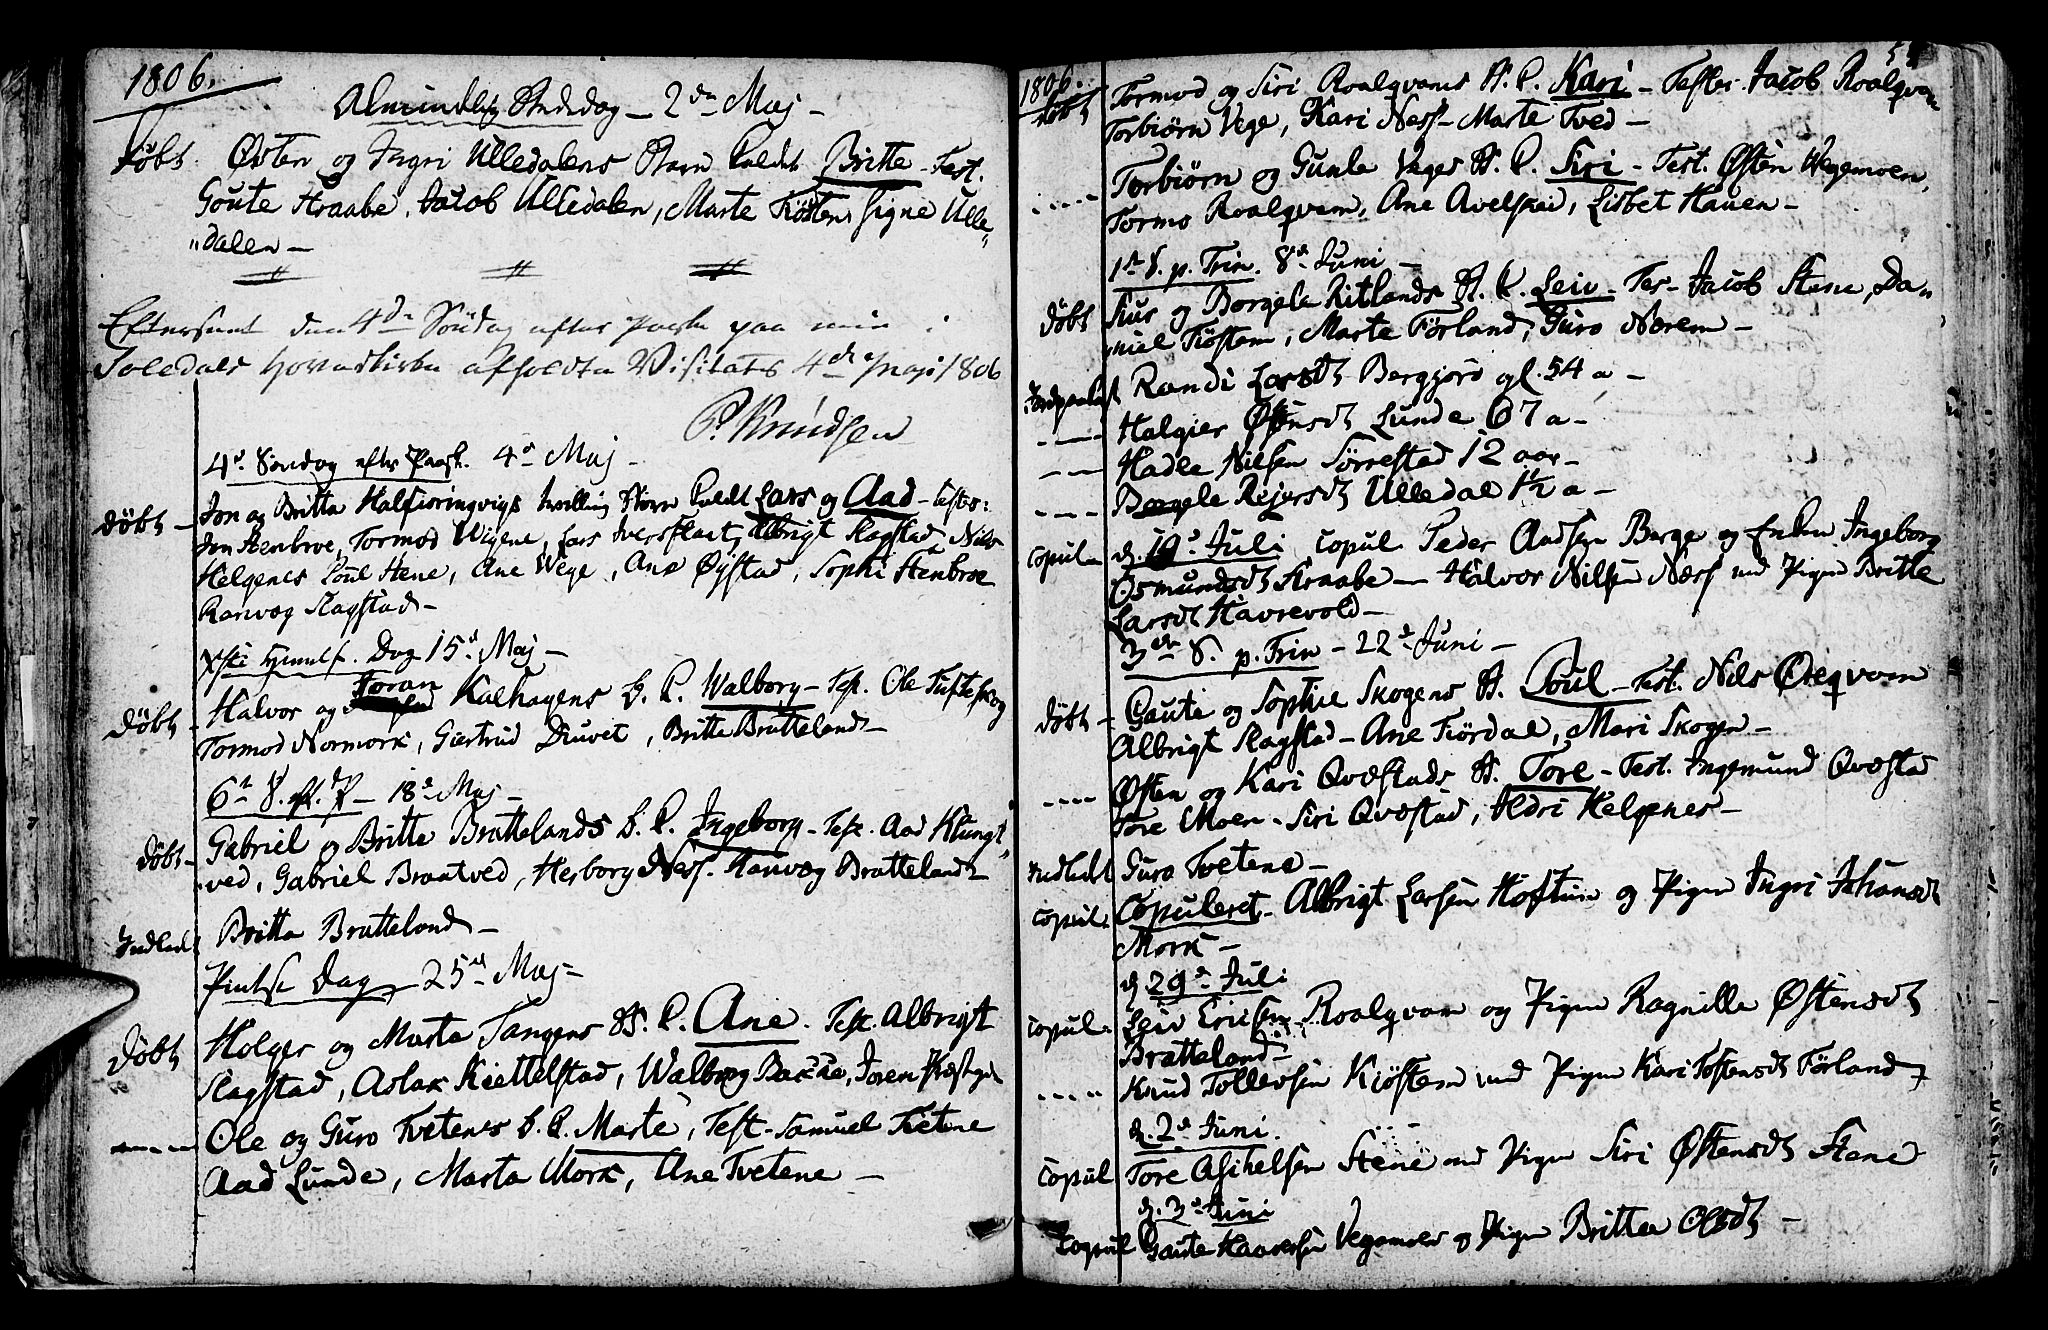 1806.
Almindelig Bededag – 2den Maj –
Døbt. Østen og Ingri Ulledalens Barn kaldet Britte – Test.
Goute Straabe, Jacob Ulledalen, Marte Kiøsten, Signe Ulle„
„dalen –
Efterseet den 4de Søndag efter Paaske paa min i
Soledals Hovedkirke afholdte Visitats 4de Maji 1806
P. Knudsen
4d. Søndag efter Paask. 4d Maj –
Døbt – Jon og Britta Halfioringvigs tvilling Børn kaldt Lars og Aad – Testes:
Jon Stenbroe, Tormod Wigene, Lars Iversflaat, Albrigt Slagstad, Nils
Helgenes Poul Stene, Ane Wege, Ane Øystad, Sophi Stenbroe
Ranvæg Slagstad –
Xsti Himmelf. Dag 15d Maj –
Døbt – Halvor og Joran Kalhagens b. k. Walborg – Test. Ole Tufteskog
Tormod Normork, Giertrud Diuvet, Britte Bratteland –
6te S. eft. P – 18d Maj –
Døbt – Gabriel og Britte Brattelands b. k. Ingeborg – Test. Aad Klungt„
„ved, Gabriel Braatved, Herborg Ness. Ranvæg Bratteland –
Indledt Britta Bratteland –
Pintse Dag 25de Maj –
Døbt Holger og Marta Tangens B. k. Ane. Test. Albrigt
Slagstad, Aslak Kiettelstad, Walborg Bakke, Joren
---- Ole og Guro Tvetenes b. k. Marte, Test – Samuel Tvetene
Aad Lunde, Marta Mork, Ane Tvetene –
1806.
Døbt Tormod og Siri Roalqvams B. k. Kari – Testes. Jacob Roalqvam
Torbiørn Vege, Kari Ness – Marte Tved –
---- Torbiørn og Gunla Veges B. k. Siri – Test. Østen Wegemoen,
Tormo Roalqvam, Ane Avelskad, Lisbet Hauen –
1te S. p. Trin. 8de Juni –
Døbt Siur og Borgele Ritlands B. k. Leiv – Tes – Jacob Stene, Da„
niel Kiøsten, Marte Førland, Guro Nærem –
Randi Larsdt Bergjord gl. 54 a –
---- Halgier Østensdt Lunde 67 a –
---- Hadle Nilsen Sørrestad 12 aar –
---- Borgele Rejersdt Ulledal 1½ a –
Copul d. 19d Juli copul Peder Aadsen Berge og Enken Ingeborg
Osmundsdt Straabe – Halvor Nilsen Næss med Pigen Britte
Larsdt Havrevold –
3die S. p. Trin – 22d Juni –
Døbt – Gaute og Sophie Skogens B. Poul – Test. Nils Øreqvam
Albrigt Slagstad – Ane Fiørdal, Mari Skogen –
---- Østen og Kari Qvæstads B. Tore – Test. Ingemund Qvæstad
Tore Moen – Siri Qvæstad, Aldri Helgenes –
Indledt Guro Tvetene –
Copul. Copuleret – Albrigt Larsen Høftun og Pigen Ingri Johansdt
Mork –
d. 29d Juli
Copul. Leiv Ericsen Roalqvam og Pigen Ragnille Østensdt
Bratteland –
---- Knud Tollevsen Kiøsten med Pigen Kari Tostensdt Førland
d. 2d Juni.
Copul Tore Aschelsen Stene med Pigen Siri Østensdt Stene
d. 3d Juni
Copul Gaute Haaversen Vegemoen og Pigen Britta Olsdt –